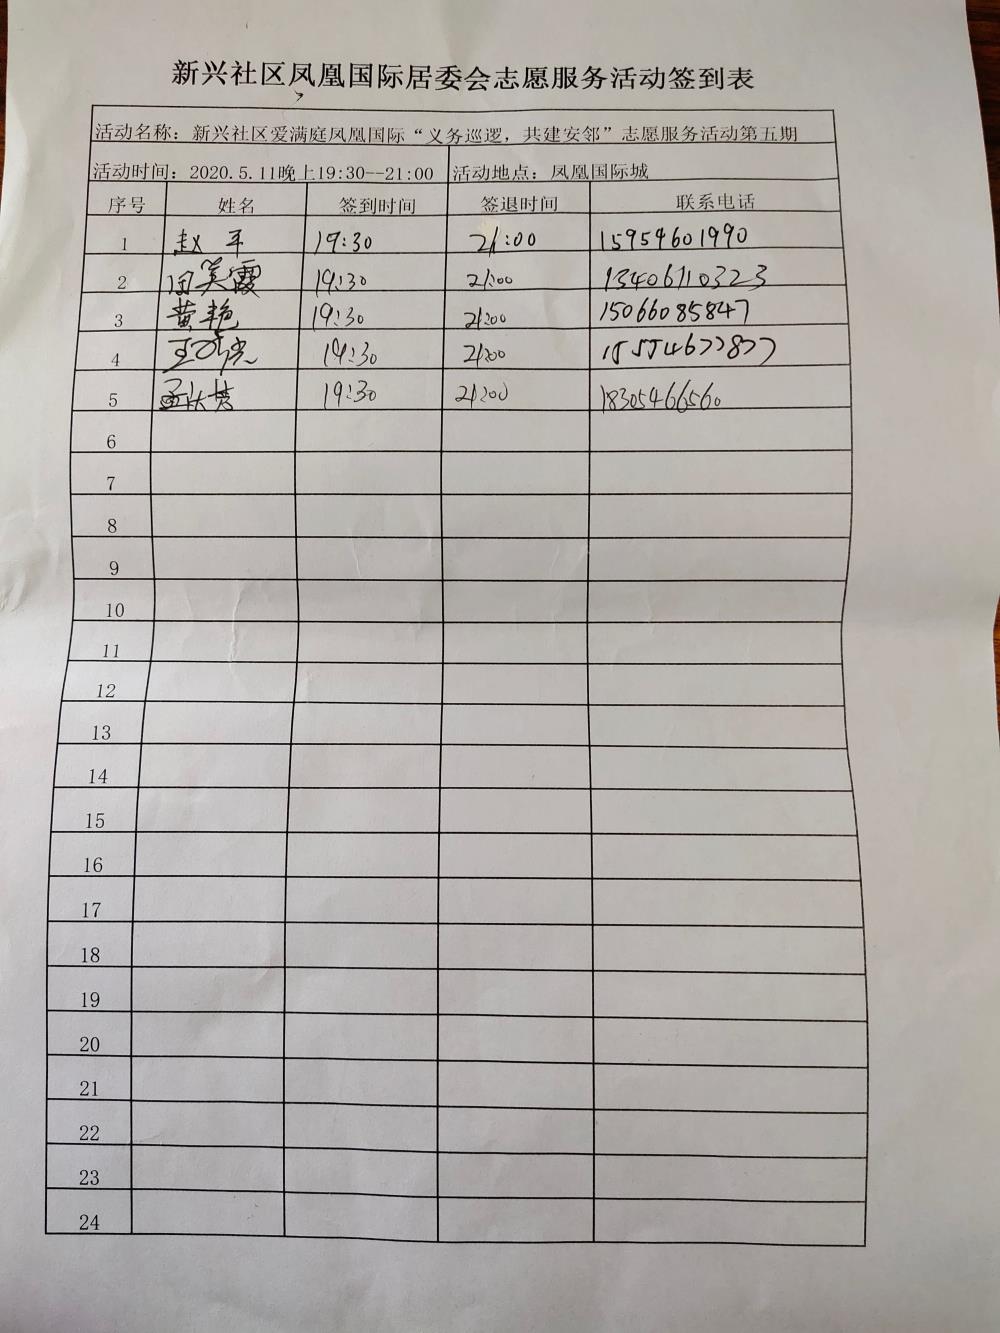 新兴社区凤凰国际居委会志愿服务活动签到表
活动名称：新兴社区爱满庭凤凰国际“义务巡逻，共建安邻”志愿服务活动第五期
活动时间：2020.5.11晚上19:30--21:00 活动地点：凤凰国际城
序号 姓名 签到时间 签退时间 联系电话
1 赵平 19:30 21:00 15954601990
2 美霞 19:30 21:00 13406110323
3 黄艳 19:30 21:00 15066085847
4 王 19:30 21:00 15554677877
5 孟 19:30 21:00 18305466560
6
7
8
9
10
11
12
13
14
15
16
17
18
19
20
21
22
23
24